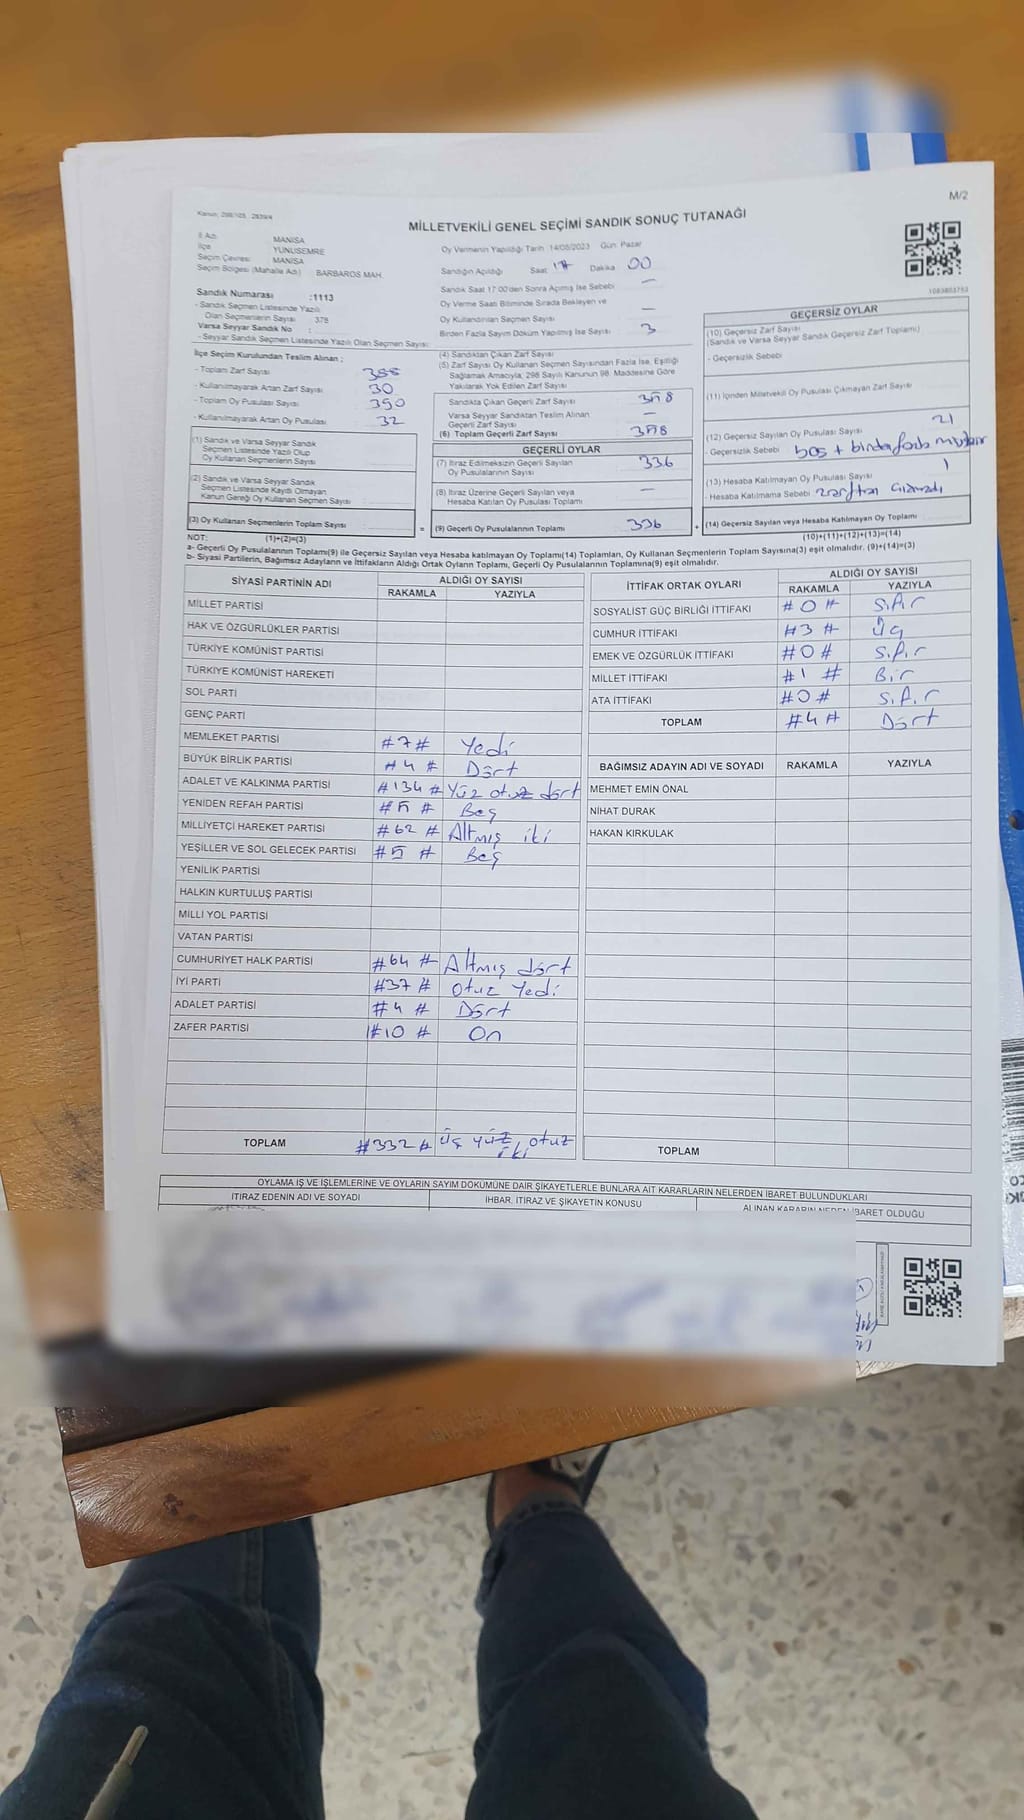 M/2
Kanun: 298/105 - 2839/4
MİLLETVEKİLİ GENEL SEÇİMİ SANDIK SONUÇ TUTANAĞI
İl Adı : MANİSA
İlçe : YUNUSEMRE
Seçim Çevresi : MANİSA
Seçim Bölgesi (Mahalle Adı) : BARBAROS MAH.
Sandık Numarası :1113
- Sandık Seçmen Listesinde Yazılı
Olan Seçmenlerin Sayısı : 378
Varsa Seyyar Sandık No :
- Seyyar Sandık Seçmen Listesinde Yazılı Olan Seçmen Sayısı:
İlçe Seçim Kurulundan Teslim Alınan ;
- Toplam Zarf Sayısı 388
- Kullanılmayarak Artan Zarf Sayısı 30
- Toplam Oy Pusulası Sayısı 390
- Kullanılmayarak Artan Oy Pusulası 32
(1) Sandık ve Varsa Seyyar Sandık
Seçmen Listesinde Yazılı Olup
Oy Kullanan Seçmenlerin Sayısı
(2) Sandık ve Varsa Seyyar Sandık
Seçmen Listesinde Kaydı Olmayan
Kanun Gereği Oy Kullanan Seçmen Sayısı :
(3) Oy Kullanan Seçmenlerin Toplam Sayısı :
Oy Vermenin Yapıldığı Tarih :14/05/2023 Gün: Pazar
Sandığın Açıldığı Saat: 17 Dakika 00
Sandık Saat 17:00'den Sonra Açılmış İse Sebebi —
Oy Verme Saati Bitiminde Sırada Bekleyen ve
Oy Kullandırılan Seçmen Sayısı —
Birden Fazla Sayım Döküm Yapılmış İse Sayısı 3
(4) Sandıktan Çıkan Zarf Sayısı
(5) Zarf Sayısı Oy Kullanan Seçmen Sayısından Fazla İse, Eşitliği
Sağlamak Amacıyla, 298 Sayılı Kanunun 98. Maddesine Göre
Yakılarak Yok Edilen Zarf Sayısı
Sandıkta Çıkan Geçerli Zarf Sayısı 358
Varsa Seyyar Sandıktan Teslim Alınan
Geçerli Zarf Sayısı —
(6) Toplam Geçerli Zarf Sayısı 358
GEÇERLİ OYLAR
(7) İtiraz Edilmeksizin Geçerli Sayılan
Oy Pusulalarının Sayısı 336
(8) İtiraz Üzerine Geçerli Sayılan veya
Hesaba Katılan Oy Pusulası Toplamı —
= (9) Geçerli Oy Pusulalarının Toplamı 336 +
1083803753
GEÇERSİZ OYLAR
(10) Geçersiz Zarf Sayısı
(Sandık ve Varsa Seyyar Sandık Geçersiz Zarf Toplamı)
- Geçersizlik Sebebi
(11) İçinden Milletvekili Oy Pusulası Çıkmayan Zarf Sayısı
(12) Geçersiz Sayılan Oy Pusulası Sayısı 21
- Geçersizlik Sebebi boş + birden fazla mühür
(13) Hesaba Katılmayan Oy Pusulası Sayısı 1
- Hesaba Katılmama Sebebi zarftan çıkmadı
(14) Geçersiz Sayılan veya Hesaba Katılmayan Oy Toplamı
NOT: (1)+(2)=(3) (10)+(11)+(12)+(13)=(14)
a- Geçerli Oy Pusulalarının Toplamı(9) ile Geçersiz Sayılan veya Hesaba katılmayan Oy Toplamı(14) Toplamları, Oy Kullanan Seçmenlerin Toplam Sayısına(3) eşit olmalıdır. (9)+(14)=(3)
b- Siyasi Partilerin, Bağımsız Adayların ve İttifakların Aldığı Ortak Oyların Toplamı, Geçerli Oy Pusulalarının Toplamına(9) eşit olmalıdır.
SİYASİ PARTİNİN ADI ALDIĞI OY SAYISI
RAKAMLA YAZIYLA
MİLLET PARTİSİ
HAK VE ÖZGÜRLÜKLER PARTİSİ
TÜRKİYE KOMÜNİST PARTİSİ
TÜRKİYE KOMÜNİST HAREKETİ
SOL PARTİ
GENÇ PARTİ
MEMLEKET PARTİSİ #7# Yedi
BÜYÜK BİRLİK PARTİSİ #4# Dört
ADALET VE KALKINMA PARTİSİ #134# Yüz otuz dört
YENİDEN REFAH PARTİSİ #5# Beş
MİLLİYETÇİ HAREKET PARTİSİ #62# Altmış iki
YEŞİLLER VE SOL GELECEK PARTİSİ #5# Beş
YENİLİK PARTİSİ
HALKIN KURTULUŞ PARTİSİ
MİLLİ YOL PARTİSİ
VATAN PARTİSİ
CUMHURİYET HALK PARTİSİ #64# Altmış dört
İYİ PARTİ #37# Otuz Yedi
ADALET PARTİSİ #4# Dört
ZAFER PARTİSİ #10# On
TOPLAM #332# üç yüz otuz iki
İTTİFAK ORTAK OYLARI ALDIĞI OY SAYISI
RAKAMLA YAZIYLA
SOSYALİST GÜÇ BİRLİĞİ İTTİFAKI #0# Sıfır
CUMHUR İTTİFAKI #3# Üç
EMEK VE ÖZGÜRLÜK İTTİFAKI #0# Sıfır
MİLLET İTTİFAKI #1# Bir
ATA İTTİFAKI #0# Sıfır
TOPLAM #4# Dört
BAĞIMSIZ ADAYIN ADI VE SOYADI RAKAMLA YAZIYLA
MEHMET EMİN ÖNAL
NİHAT DURAK
HAKAN KIRKULAK
TOPLAM
OYLAMA İŞ VE İŞLEMLERİNE VE OYLARIN SAYIM DÖKÜMÜNE DAİR ŞİKAYETLERLE BUNLARA AİT KARARLARIN NELERDEN İBARET BULUNDUKLARI
İTİRAZ EDENİN ADI VE SOYADI İHBAR, İTİRAZ VE ŞİKAYETİN KONUSU ALINAN KARARIN NEDEN İBARET OLDUĞU